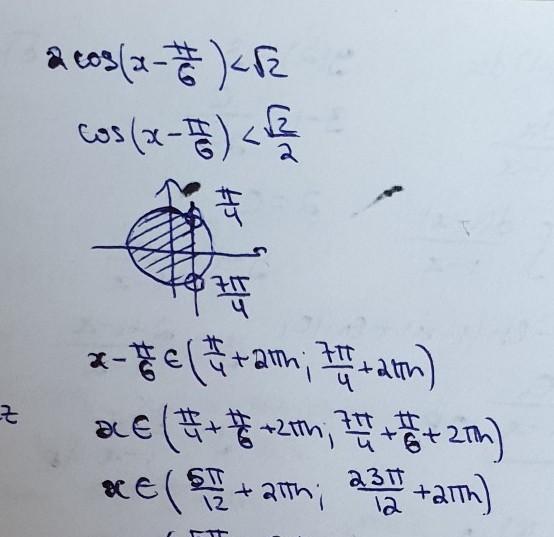 2cos(x-π/6)<√2
cos(x-π/6)<√2/2
π/4
7π/4
x-π/6∈(π/4+2πn; 7π/4+2πn)
z
x∈(π/4+π/6+2πn; 7π/4+π/6+2πn)
x∈(5π/12+2πn; 23π/12+2πn)